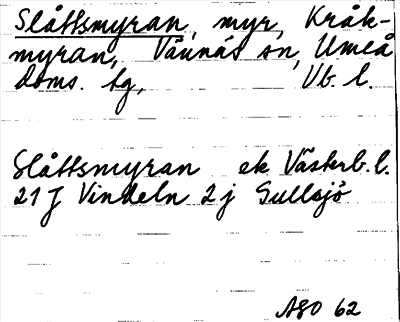 Slåttsmyran, myr, Kråk-
myran, Vännäs sn, Umeå
doms. tg, Vb. l.
Slåttsmyran ek Västerb. l.
21 J Vindeln 2 j Gullsjö
ASO 62